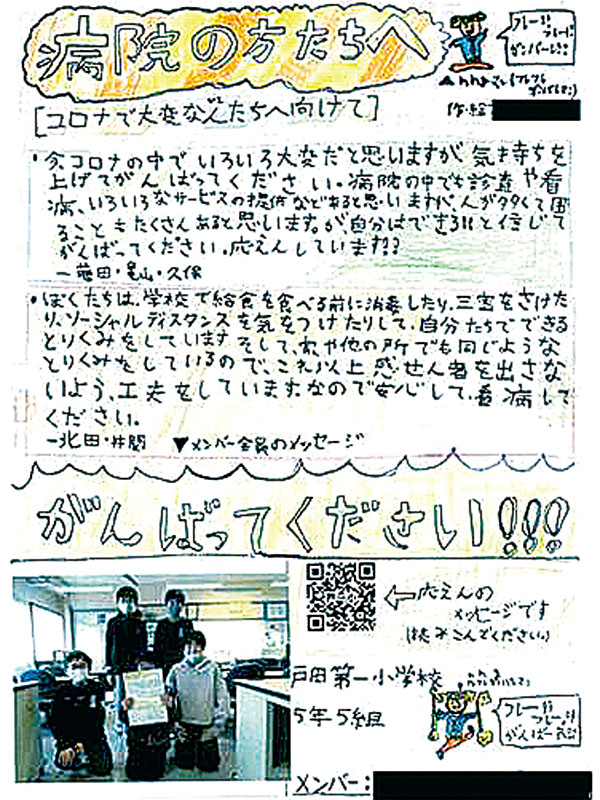 病院の方たちへ
フレー!!
フレー!!
ガンバレ!!
[コロナで大変な人たちへ向けて]
作・絵
・今コロナの中で いろいろ大変だと思いますが、気持ちを
上げてがんばってください。病院の中でも診査や看
病、いろいろなサービスの提供などあると思いますが、人がタタくて困
ることもたくさんあると思います。が、自分はできる!!と信じて
がんばってください。応えんしています!!
ー ・ 山・久保
・ぼくたちは、学校で給食を食べる前に消毒したり、三密をさけた
り、ソーシャルディスタンスを気をつけたりして、自分たちでできる
とりくみをしています。そして、家や他の所でも同じような
とりくみをしているので、これ以上感せん者を出さな
いよう、工夫をしています。なので安心して、看病して
ください。
ー北田・井関 ▼メンバー全員のメッセージ
がんばってください!!!
←応えんの
メッセージです
(読みこんでください)
戸田第一小学校
5年5組
フレー!!
フレー!!
がんばー
メンバー: